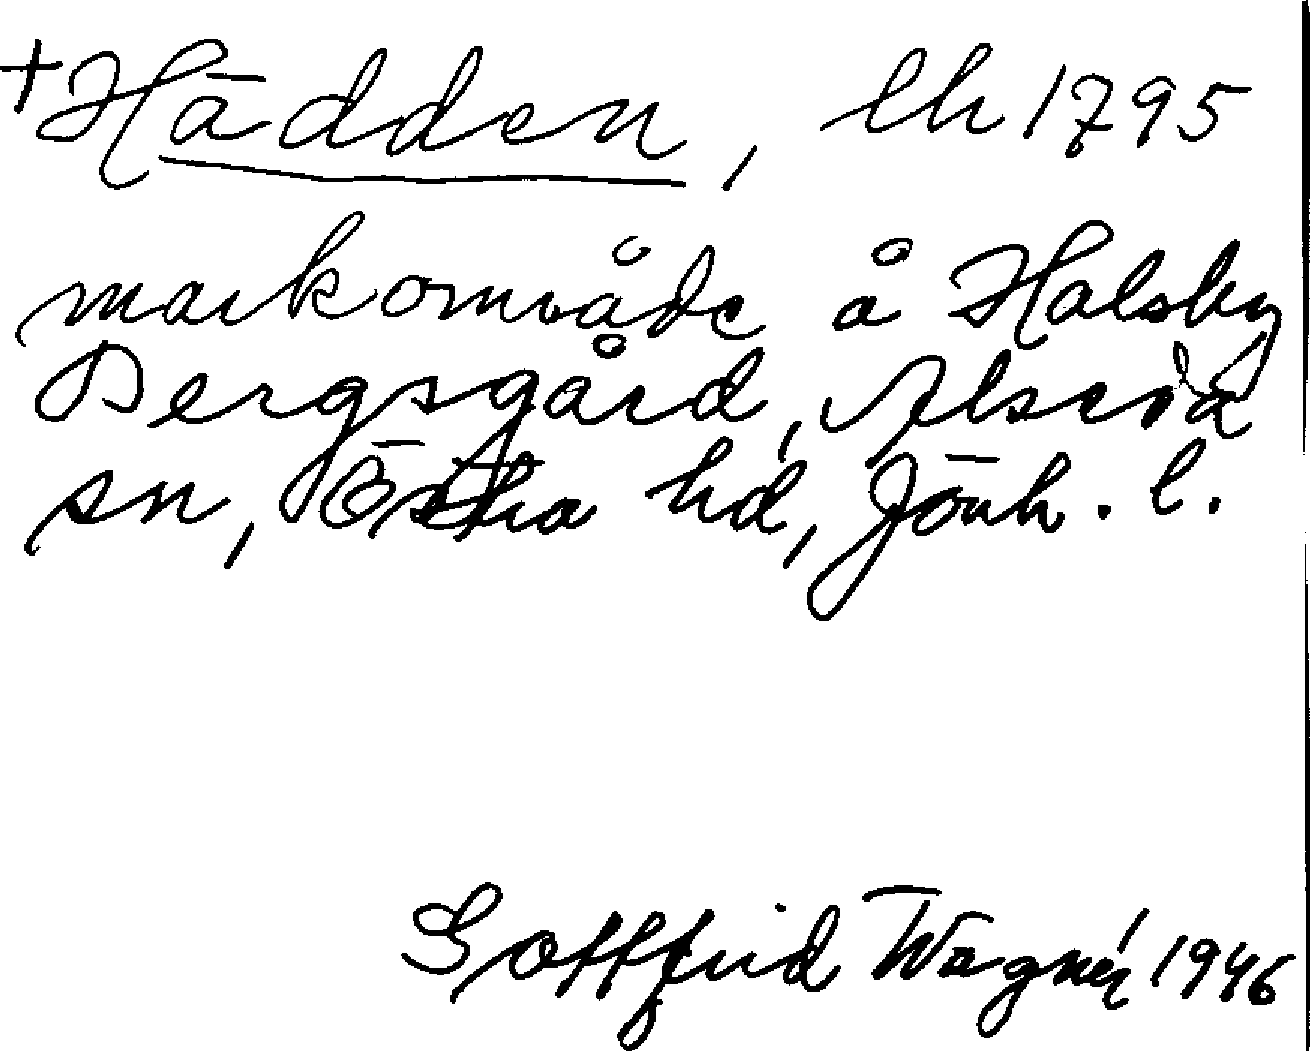 +Hädden, lh 1795
markområde å Holsby
Bergsgård, Alseda
sn, Östra hd, Jönk. l.
Gottfrid Wagnér 1946